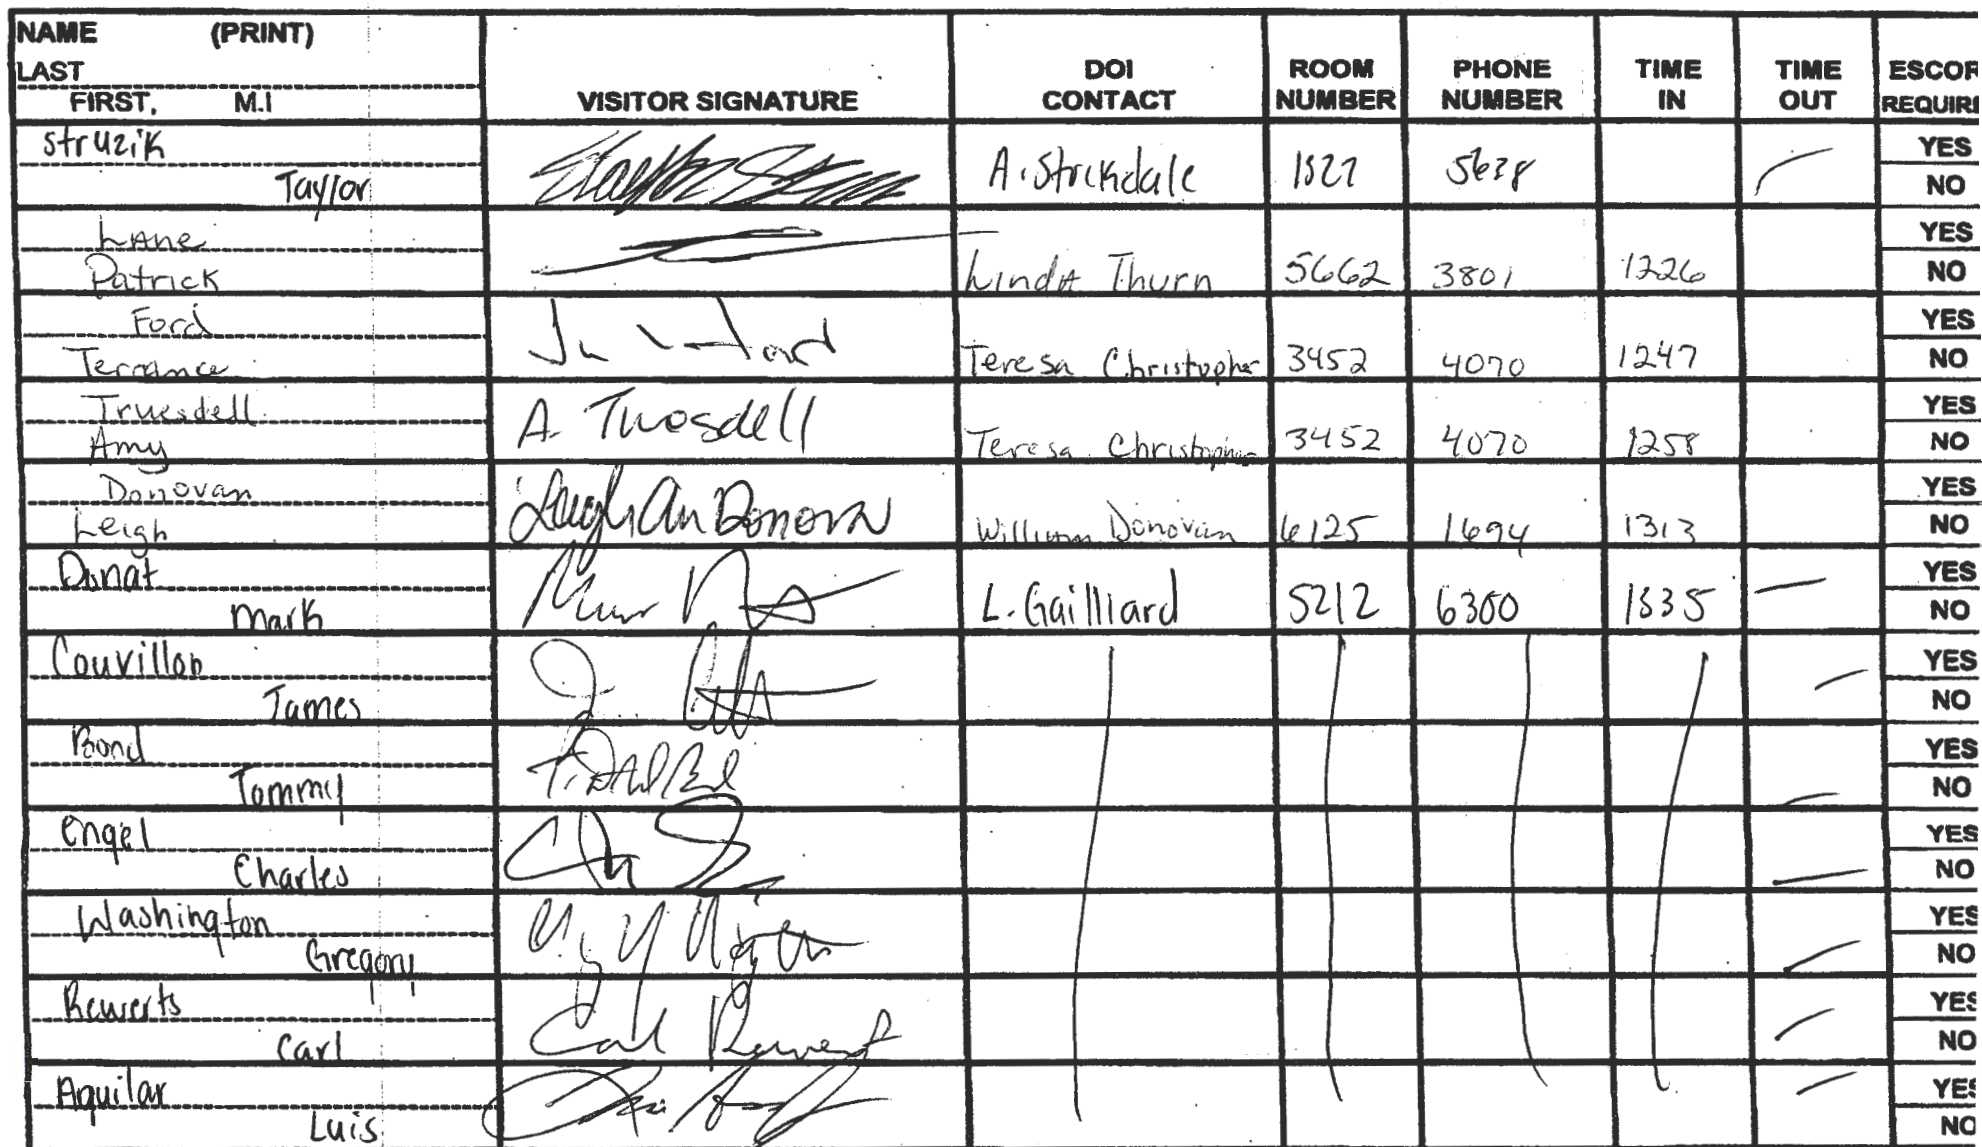 NAME (PRINT)
LAST
FIRST, M.I
VISITOR SIGNATURE
DOI CONTACT
ROOM NUMBER
PHONE NUMBER
TIME IN
TIME OUT
ESCOR
REQUIRE
Struzik
Taylor
A. Stockdale 5628 YES
NO
Lane
Patrick
Linda Thurn 5662 3801 1226 YES
NO
Ford
Terrance
Teresa Christopher 3452 4070 1247 YES
NO
Truesdell
Amy
A. Truesdell
Teresa Christopher 3452 4070 1258 YES
NO
Donovan
Leigh
Leigh Ann Donovan
William Donovan 6125 1694 1313 YES
NO
Donat
Mark
L. Gailliard 5212 6300 1335 YES
NO
Couvillon
James
YES
NO
Bond
Tommy
YES
NO
Engel
Charles
YES
NO
Washington
Gregory
YES
NO
Rewerts
Carl
Carl Rewerts
YES
NO
Aquilar
Luis
YES
NO